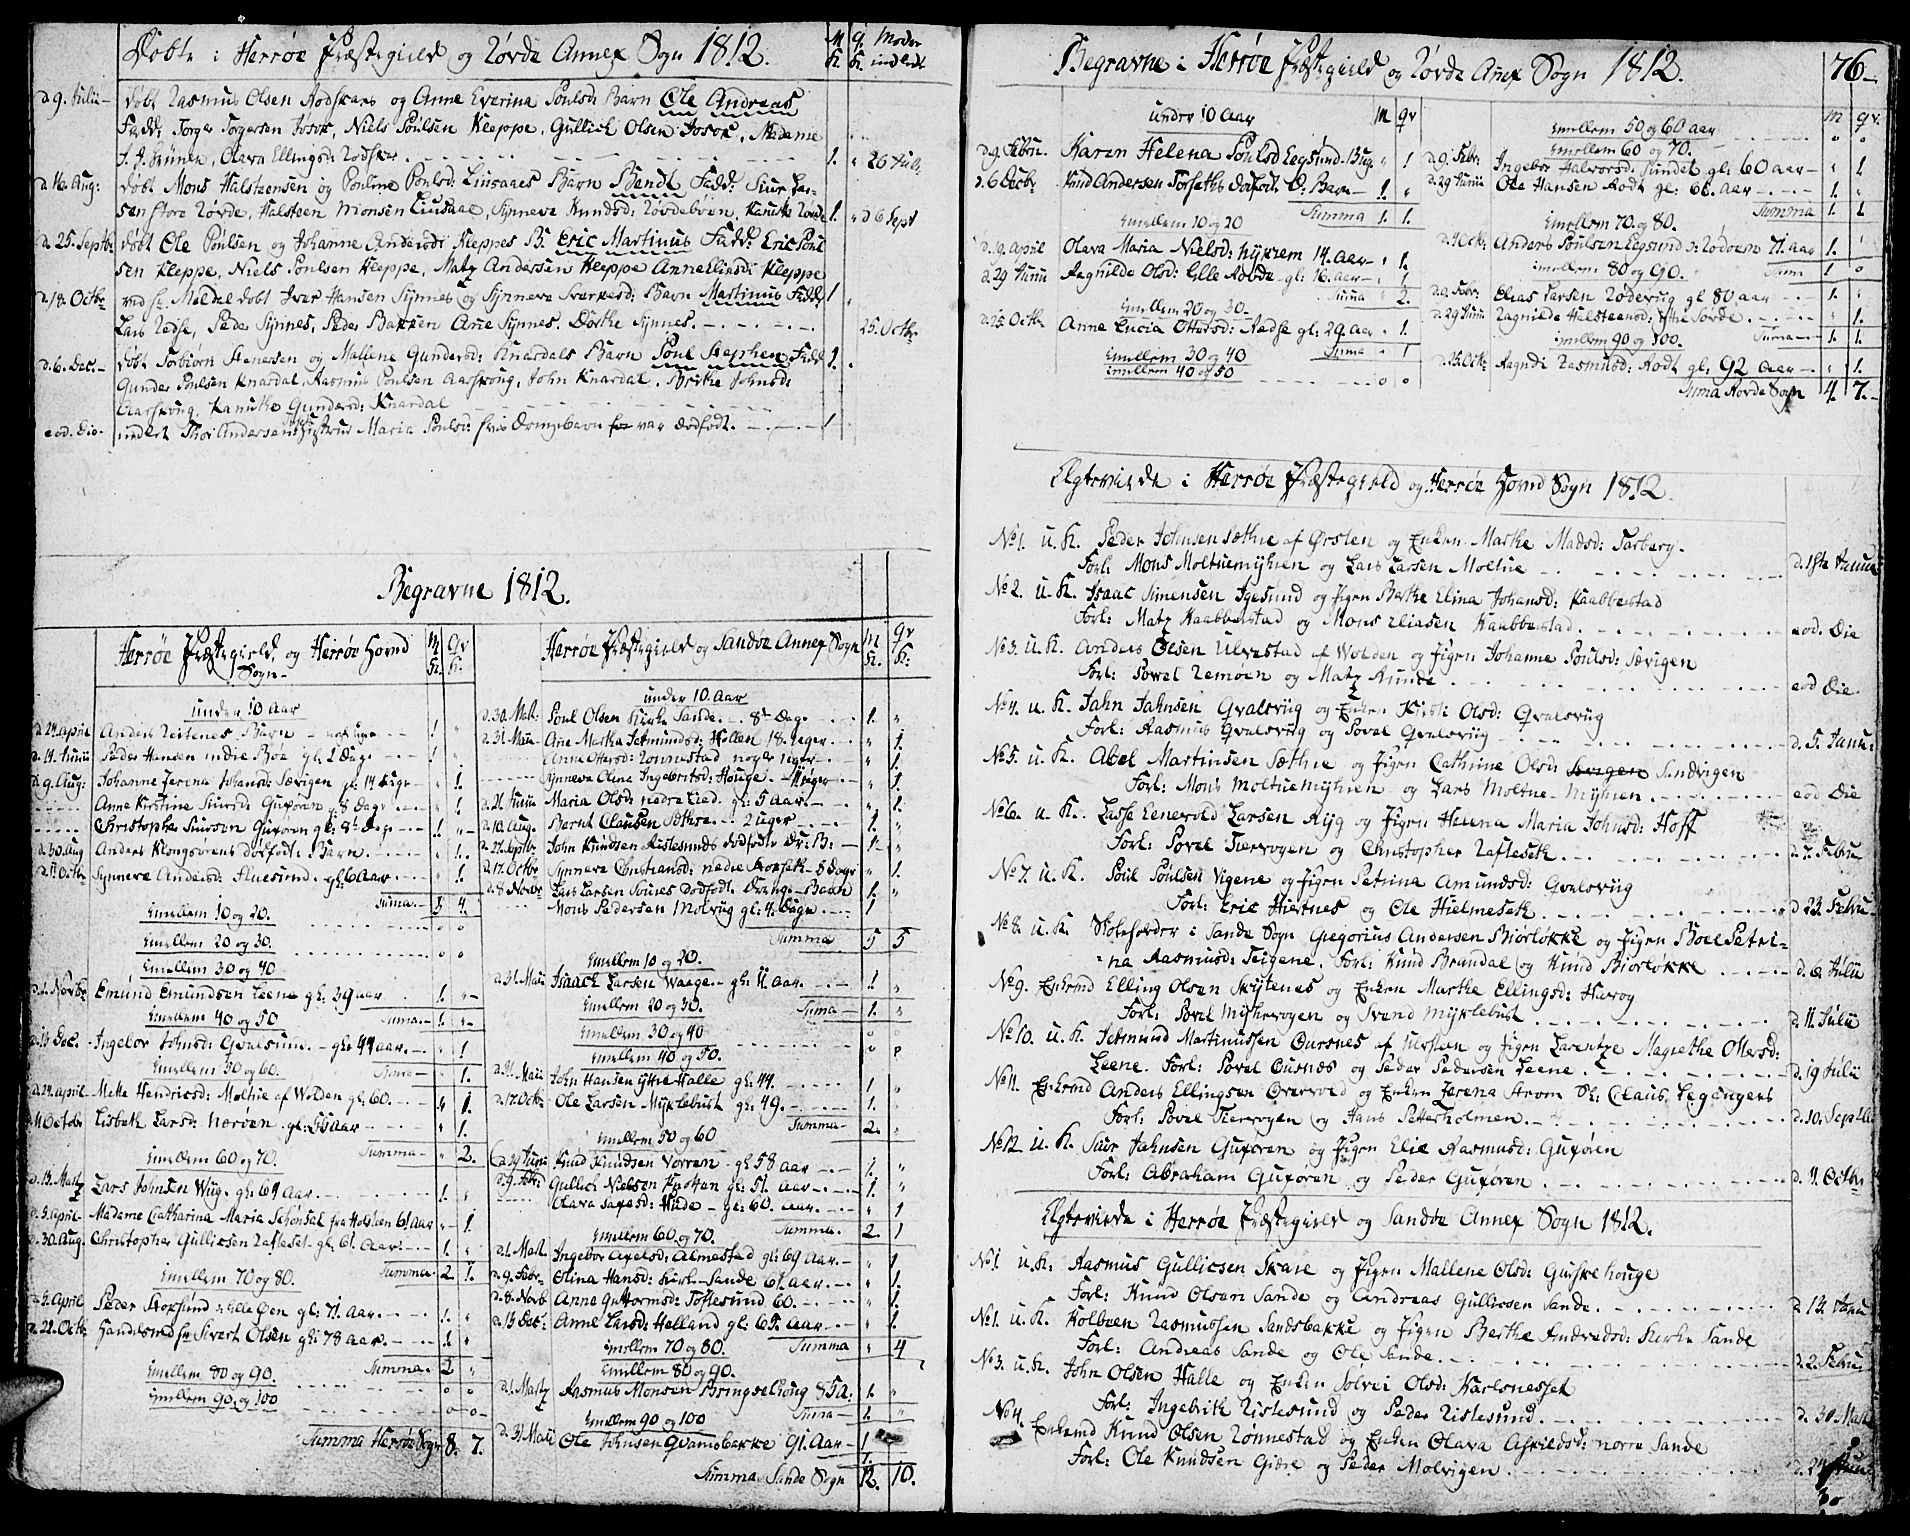 Døbte i Herrøe Præstegield og Rovde Annex Sogn 1812.
M. K. q. K. Moder indledt
d. 9. Julii døbt Rasmus Olsen og Anne Everina Poulsd: Barn Ole Andreas
Fadd: Torger Torgersen Jøsok, Niels Poulsen Kleppe, Gullich Olsen Josok, Madame
Olava Ellingsd: 1. 26 Juli
d. 16. Aug: døbt Mons Halsteensen og Pouline Poulsd: Liusnaes Barn Bendt Fadd: Siur Lar-
sen store Rovde, Halsteen Monsen, Synneve Knudsd: Rovde 1. d 6 Sept
d. 25. Septbr døbt Ole Poulsen og Johanne Andersd: Kleppes B. Eric Martinus Fadd: Eric Poul
sen Kleppe, Niels Poulsen Kleppe, Matz Andersen Kleppe Anne Eliasd: Kleppe
d. 18. Octbr ved Hr. Meldal døbt Iver Hansen Synnes og Synneve Barn Martinus Fadd: 1
Lars, Peder Synnes, Peder Bakken Ane Synnes, Dorthe Synnes. 25. Octbr
d. 6. Dec. døbt Torbiørn Stenersen og Mallene Gundersd: Knardals Barn Poul Stephen Fadd 1.
Gunder Poulsen Knardal, Rasmus Poulsen Aarskoug, John Knardal, Birthe Johnsd:
Aarskoug, Kanutte Gundersd: Knardal
eod. Die. Thor Andersens Hustrue Maria Poulsd: Drengebarn for var dødfødt. 1
Begravne 1812.
Herrøe Præstegield og Herrøe Hovnd Sogn
M K. Qv K.
under 10 Aar
d. 24. April Anders Reitenes Barn 1
d. 14. Junii Peder Hansen indre Bøe gl: 2 Dag. 1
d. 9. Aug: Johanne Jerina Johansd: Sævigen gl: 14 Uger 1.
Anne Kirstine Siursd: Guxøren 8 Dage 1.
Christopher Siursen Guxøren gl: 8 Dage 1.
d. 30. Aug Anders Klongsørens dødfødte Barn. 1.
d. 11 Octbr Synneve Andersd: Fluesund. gl: 6 Aar 1.
Suma. 3 4.
Emellem 10 og 20. o o
Emellem 20 og 30. o o
Emellem 30 og 40
d. 1. Novbr Emund Emundsen Leene gl: 39 aar 1.
Emellem 40 og 50 Suma. 1.
d. 13 Dec. Ingebor Johnsd: Qvalsund. gl: 44 aar. 1
Emellem 50 og 60. Suma 1.
d. 24. April Mette Hendricsd: Mølthie af Wolden gl: 60. 1.
d. 11 October Lisbeth Larsd: Nærøen gl: 56 aar 1.
Emellem 60 og 70. Summa 2.
d. 13. Martz Lars Johnsen Wug. gl: 64 Aar. 1.
d. 5. April Madame Catharina Maria Schønsal fra Holsteen 61 Aar 1.
d. 30. Aug. Christopher Gullicsen Raftesæt gl: 61. Aar. 1.
Emellem 70 og 80. Summa 2 1.
d. 3. April Peder Skoxsund gl: 71. Aar. 1.
d. 22. Octbr Handelsmd Hr Sivert Olsen gl: 78 aar. 1.
Emellem 80 og 90. Summa. 2
Emellem 90. og 100 o o
Summa Herrøe Sogn 8. 7.
Herrøe Præstegield og Sandøe Annex Sogn
M K. qv K.
under 10. Aar
d. 30. Mai: Poul Olsen Kirke Sande. 8 Dage 1.
d. 31. Maii Ane Martha Setmundsd: Hallen 18 Uger 1.
Anne Ottersd: Ronnestad nogle uger 1.
Synneve Oline Ingebritsd: Houge. Uger 1
d. 21. Junii Maria Olsd: nedre Lied. gl: 5 aar. 1.
d. 10. Aug. Bernt Clausen Sethre. 2 uger 1.
d. 27. Septbr John Knudsen Ristesunds dødfødte Dr: B: 1.
d. 17. Octbr Synneve Christiansd: nedre 8 Dage 1.
d. 8. Novbr Lars Larsen Dødfødt Drenge-Barn 1.
Mons Pedersen Molvug gl: 4. Dage 1
Summa 5 5
Emellem 10 og 20.
d. 31. Maii Isaach Larsen Waage. gl: 11 Aar. 1.
Emellem 20 og 30. Suma 1.
Emellem 30 og 40 o o
Emellem 40 og 50.
d. 31. Maii John Hansen yttre Halle gl: 44. 1
d. 17. Octbr Ole Larsen Myklebust gl: 49. 1.
Emellem 50 og 60 Summa 2.
d. 29 Junii Knud Knudsen Vorren gl: 58 aar 1.
d. 9. Febr: Gullich Nielsen Knotten gl: 51. Aar 1.
Olava Hide gl: 60. aar. 1
Emellem 60 og 70. Summa. 2 1
d. 1. Mart. Ingebor Axelsd: Almestad gl: 69 Aar. 1
d. 9. Febr. Olina Hansd: Kirke-Sande 61. aar. 1.
d. 8. Novb Anne Guttormsd: Toftesund 60. 1.
d. 13 Dec: Anne Larsd: Helland gl: 67. Aar 1.
Emellem 70 og 80. Summa 4
Emellem 80 og 90.
d. 1. Martz Rasmus Monsen Bringselhoug 85 a. 1.
Emellem 90 og 100 Suma 1.
d. 31. Maii Ole Johnsen Qvamsbakke 91. Aar 1
1.
Summa Sande Sogn 12. 10.
Begravne i Herrøe Præstegield og Rovde Anex Sogn 1812. 76
under 10 Aar M qv
d. 9. Febru. Karen Helena Poulsd Eegsund. 1
d. 6 Decbr Knud Andersen Torseths dødfød: D: Barn 1.
Summa 1. 1.
Emellem 10 og 20
d. 19. April Olava Maria Nielsd: 14. Aar 1.
d. 29 Junii Ragnilde Olsd: Lille Rovde gl: 16. aar 1
Suma 2.
Emellem 20 og 30.
d. 25. Octbr Anne Lucia Ottersd: gl: 29 aar 1.
Emellem 30 og 40 Suma 1
imellem 40 og 50 o o
m qv.
Emellem 50 og 60 aar o o
Emellem 60 og 70.
d. 9. Febr: Ingebor Halvorsd: Sundet gl: 60 aar 1
d. 29 Junii Ole Hansen gl: 66. aar 1.
Summa 1. 1
Emellem 70 og 80.
d. 4 Octbr Anders Poulsen Eegsund 71. aar 1.
imellem 80 og 90. Suma 1 o
d. 9. Febr: Elias Larsen gl. 80 aar 1.
d. 29 Junii Ragnilde Halsteensd: 1.
imellem 90 og 100. Suma 1. 1.
d. 25. Octbr Rasmusd: gl: 92 Aar 1.
Suma Rovde Sogn 4. 7.
Egteviede i Herrøe Præstegield og Herrøe Hovnd Sogn 1812.
No 1. u. K. Peder Johnsen Sæthre af Ørsten og Enken Marthe Madsd: Tarberg.
Forl: Mons Moltuemyhren og Lars Larsen Moltue d. 1ste Januar
No 2. u. K. Isaac Simensen Igesund og Pigen Berthe Elina Johansd: Kaabbestad
Forl: Matz Kaabbestad og Mons Eliasen Kaabbestad. eod. Die
No 3. u. K. Anders Olsen Ulvestad af Wolden og Pigen Johanne Poulsd: Sævigen
Forl: Povel Remøen og Matz Runde eod Die.
No 4. u. K. Jahn Jahnsen Qvalsvug og Enken Kirsti Olsd: Qvalsvug
Forl: Rasmus Qvalsvug og Povel Qvalsvug d. 5. Janu:
No 5. u. K. Abel Martinsen Sæthre og Pigen Cathrine Olsd: Sævigen Sandvigen
Forl: Mons Moltuemyhren og Lars Moltue-Myhren. eod Die
No 6. u. K. Lasse Eenevold Larsen Ryg og Pigen Helena Maria Johnsd: Hoff
Forl: Povel Tiervogen og Christopher Raftesæt. d. 7. Febru
No 7. u. K. Poul Poulsen Vigene og Pigen Petrina Amundsd: Qvalsvug
Forl: Eric Hiertnes og Ole Hielmesæt. d 23. Febru
No 8. u. K. Skoleholder i Sande Sogn Gregorius Andersen Biørløkke og Pigen Boel Petri-
na Rasmusd: Teigene. Forl: Knud Brandal og Knud Biorløkke d. 6 Julii
No 9. Enkemd Elling Olsen Skytenes og Enken Marthe Ellingsd: Havog
Forl: Povel Myhrvogen og Svend Myklebust d. 11. Julii
No 10. u. K. Setmund Martinussen Ousnes af Ursteen og Pigen Larentze Magrethe Ottersd:
Leene. Forl: Povel Ousnæs og Peder Pedersen Leene. d. 19 Julii
No 11. Enkemd Anders Ellingsen Overvold og Enken Jerena Strom Sl: Claus Leganger's
Forl: Povel Tiervogen og Hans Petterholmen. d. 10. Septb
No 12 u. K. Siur Jahnsen Guxøren og Pigen Elie Rasmusd: Guxøren
Forl: Abraham Guxøren og Peder Guxøren. d. 11. Octbr
Egteviede i Herrøe Præstegield og Sandøe Annex Sogn 1812.
No 1. u. K: Rasmus Gullicsen Skare og Pigen Mallene Olsd: Gurskehouge
Forl: Knud Olsen Sande og Andreas Gullicsen Sande. d. 13. Janu
No 1. u. K. Kolbeen Rasmussen Sandsbakke og Pigen Berthe Andreasd: Kirke Sande
Forl: Andreas Sande og Ole Sande. d. 2. Febru
No 3. u. K. John Olsen Halle og Enken Solvei Olsd: Karlsneset
Forl: Ingebrik Ristesund og Peder Ristesund. d. 30. Mart
No 4. Enkemd Knud Olsen Rønnestad og Enken Olava Asfeldsd: norre Sande
Forl: Ole Knudsen Giære og Peder Molvigen. d. 24 Juni
30